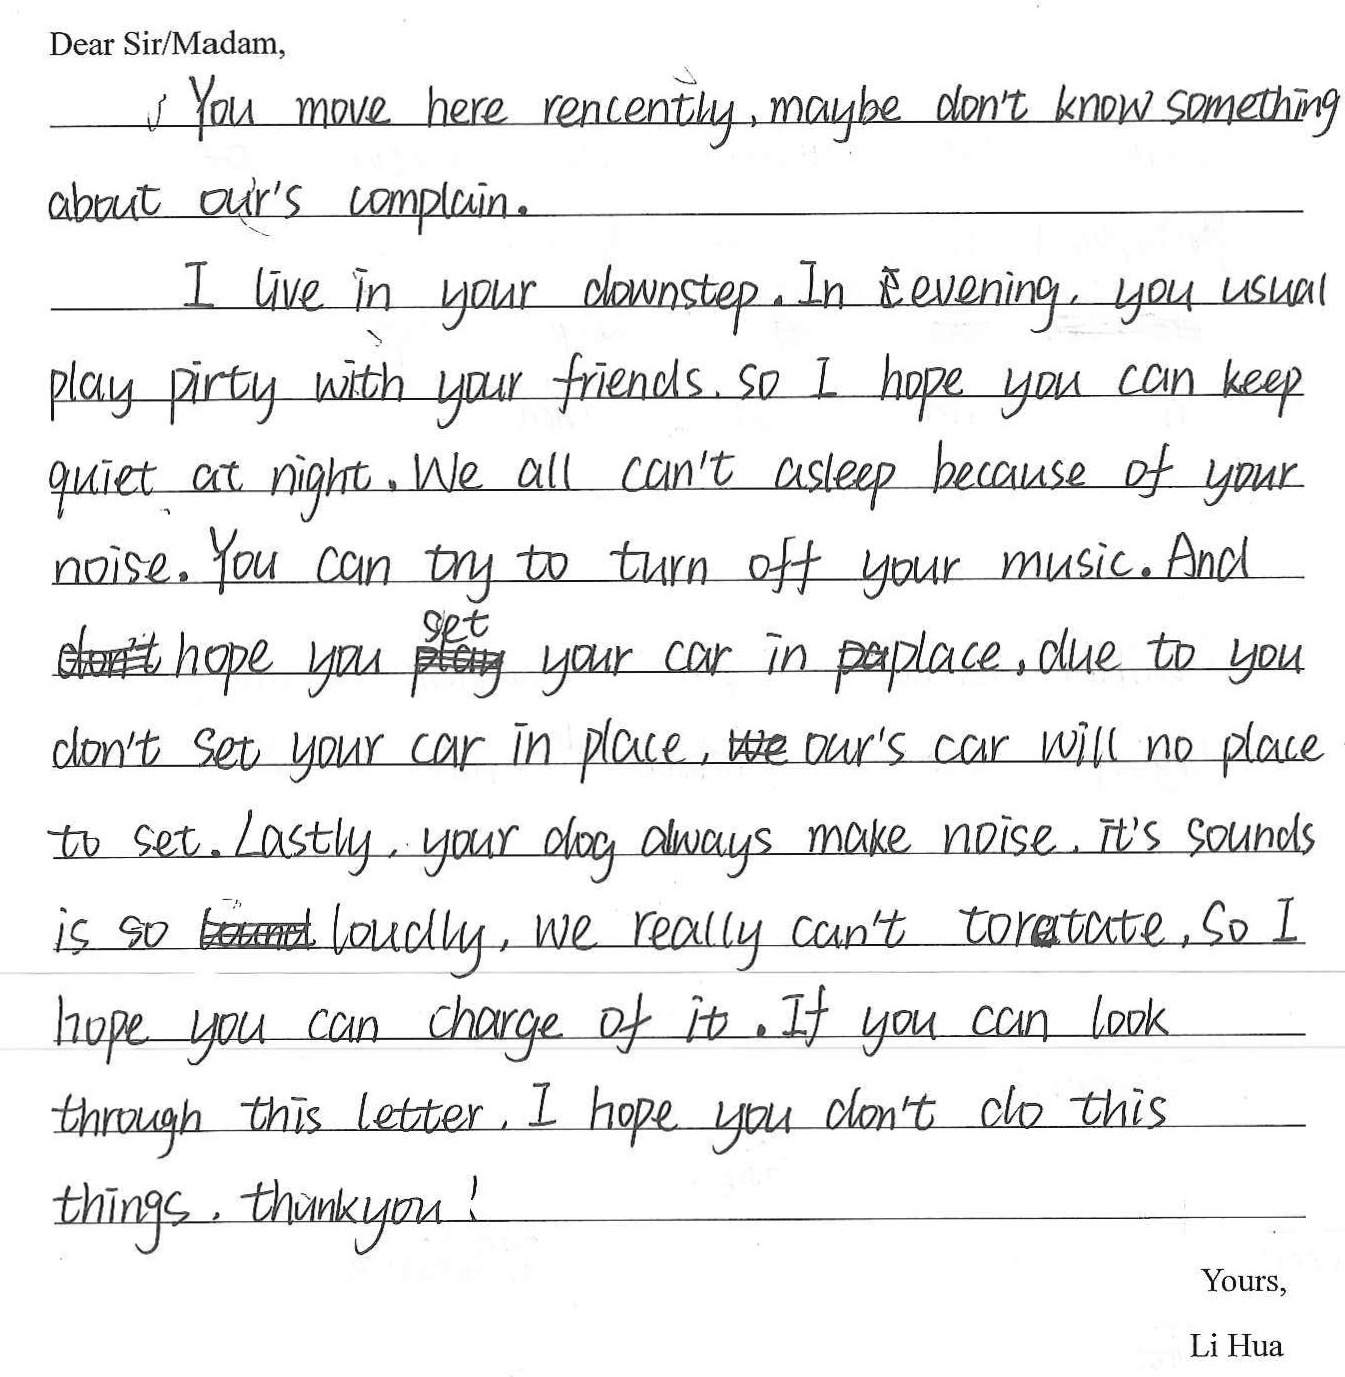 Dear Sir/Madam,
You move here rencently, maybe don't know something
about our's complain.
I live in your downstep. In evening, you usual
play pirty with your friends. so I hope you can keep
quiet at night. We all can't asleep because of your
noise. You can try to turn off your music. And
hope you set your car in place, due to you
don't set your car in place, our's car will no place
to set. Lastly, your dog always make noise. it's sounds
is so loudly, we really can't toratate, So I
hope you can charge of it. If you can look
through this letter, I hope you don't do this
things. thankyou!
Yours,
Li Hua